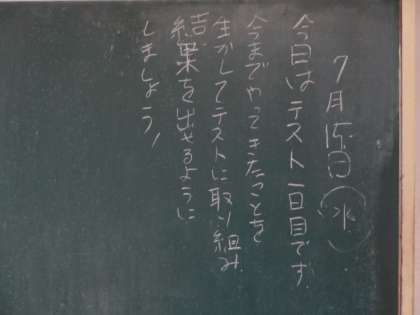 7月15日(水)
今日はテスト一日目です。
今までやってきたことを
生かしてテストに取り組み
結果を出せるように
しましょう!